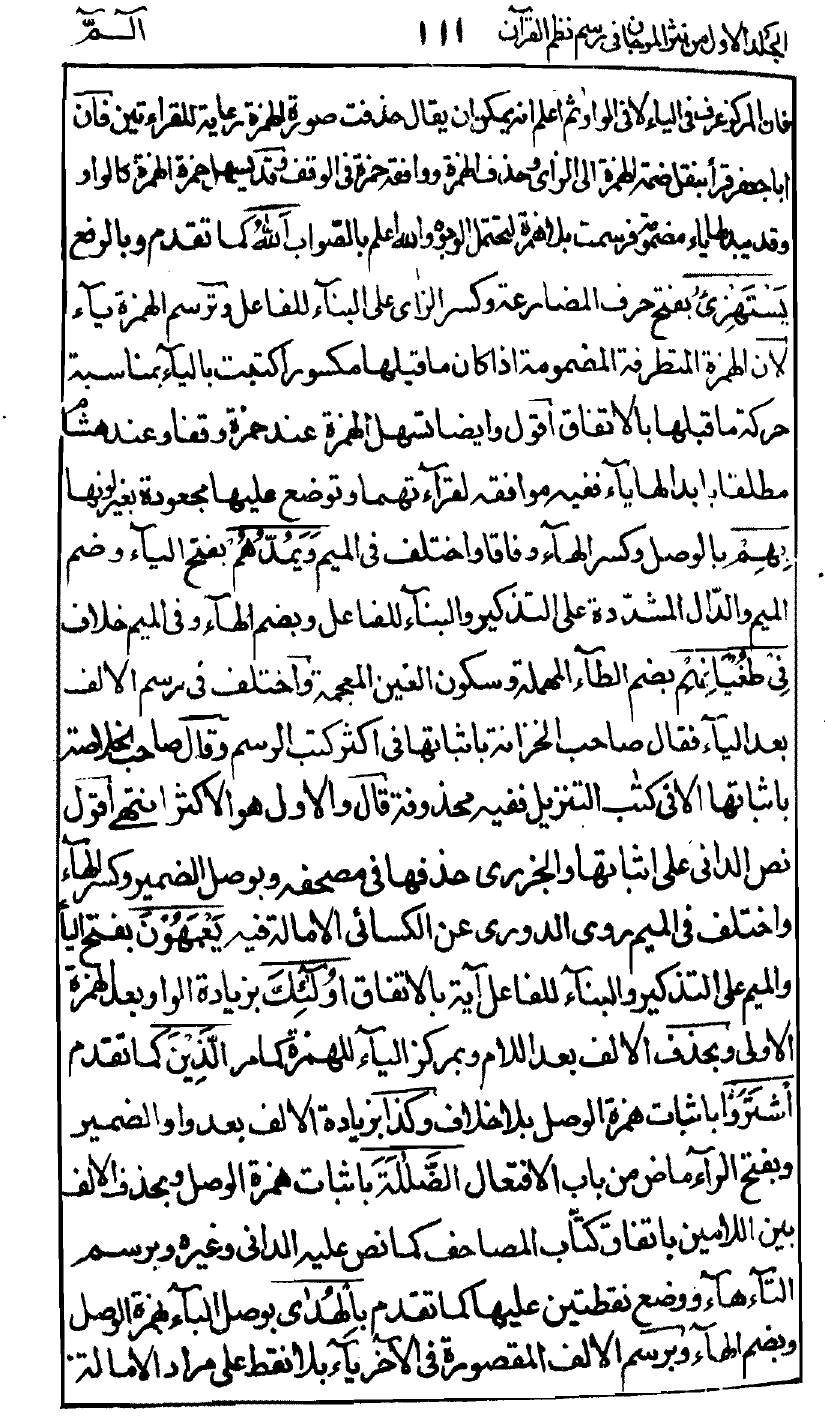 الجلد الاول من نثر المرجان فى رسم نظم القرآن ١١١ الٓـمّٓ
فان المركز عرف فى الياء لا فى الواو ثم اعلم انه يمكن ان يقال حذفت صورة الهمزة رعاية للقراءتين فان
ابا جعفر قرأ بنقل ضمة الهمزة الى الزاى وحذف الهمزة ووافقه حمزة فى الوقف وقد يسهل حمزة الهمزة كالواو
وقد يبدلها ياء مضمومة فرسمت بلا همزة ليحتمل الوجوه والله اعلم بالصواب اَللّٰهُ كما تقدم وبالرفع
يَسْتَهْزِئُ بفتح حرف المضارعة وكسر الزاى على البنآء للفاعل وترسم الهمزة يآء
لان الهمزة المتطرفة المضمومة اذا كان ما قبلها مكسورا كتبت باليآء بمناسبة
حركة ما قبلها بالاتفاق اقول وايضا تسهل الهمزة عند حمزة وقفا وعند هشام
مطلقا بابدالها يآء ففيه موافقه لقرآءتهما وتوضع عليها مجعودة بغير لونها
بِهِمْ بالوصل وكسر الهآء وفاقا واختلف فى الميم وَيَمُدُّهُمْ بفتح اليآء وضم
الميم والدال المشددة على التذكير والبنآء للفاعل وبضم الهآء وفى الميم خلاف
فِىْ طُغْيَانِهِمْ بضم الطآء المهملة وسكون الغين المعجمة واختلف فى رسم الالف
بعد اليآء فقال صاحب الخزانة باثباتها فى اكثر كتب الرسم وقال صاحب الخلاصة
باثباتها الا فى كتب التنزيل ففيه محذوفة قال والاول هو الاكثر انتهى اقول
نص الدانى على اثباتها والجزرى حذفها فى مصحفه وبوصل الضمير وكسر الهآء
واختلف فى الميم روى الدورى عن الكسائى الامالة فيه يَعْمَهُوْنَ بفتح اليآء
والميم على التذكير والبنآء للفاعل آية بالاتفاق اُولٰٓئِكَ بزيادة الواو بعد الهمزة
الاولى وبحذف الالف بعد اللام وبمركز اليآء للهمزة كما مر الَّذِيْنَ كما تقدم
اشْتَرَوُا باثبات همزة الوصل بلا خلاف وكذا بزيادة الالف بعد واو الضمير
وبفتح الرآء ماض من باب الافتعال الضَّلٰلَةَ باثبات همزة الوصل وبحذف الالف
بين اللامين باتفاق كتّاب المصاحف كما نص عليه الدانى وغيره وبرسم
التآء هآء ووضع نقطتين عليها كما تقدم بِالْهُدٰى بوصل البآء بهمزة الوصل
وبضم الهآء وبرسم الالف المقصورة فى الآخر يآء بلا نقط على مراد الامالة